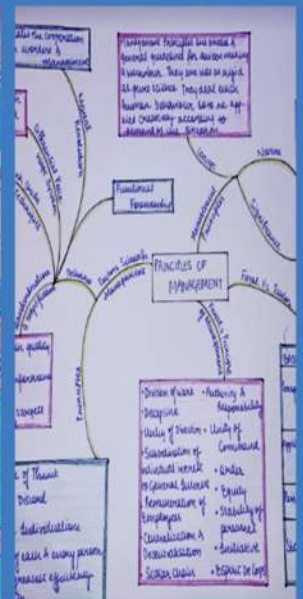 the cooperation
workers &
management
Management Principles are broad &
general guidelines for decision making
& behaviour. They are not as rigid
as pure science. They deal with
human behaviour so to be app-
lied creatively according to
demand of the situation
Functional
Foremanship
Mental
Revolution
Differential Piece
wage System
Techniques
Taylor's Scientific
Management
PRINCIPLES OF
MANAGEMENT
Management
Principles
Nature
Significance
Fayol Vs Taylor
Fayol's Principles
of Management
Principles
quality
• Division of Work
• Discipline
• Unity of Direction
• Subordination of
Individual Interest
to General Interest
• Remuneration of
Employees
• Centralisation &
Decentralisation
• Scalar Chain
• Authority &
Responsibility
• Unity of
Command
• Order
• Equity
• Stability of
personnel
• Initiative
• Esprit De Corps
of Thumb
Discord
Individualism
of each & every person
efficiency